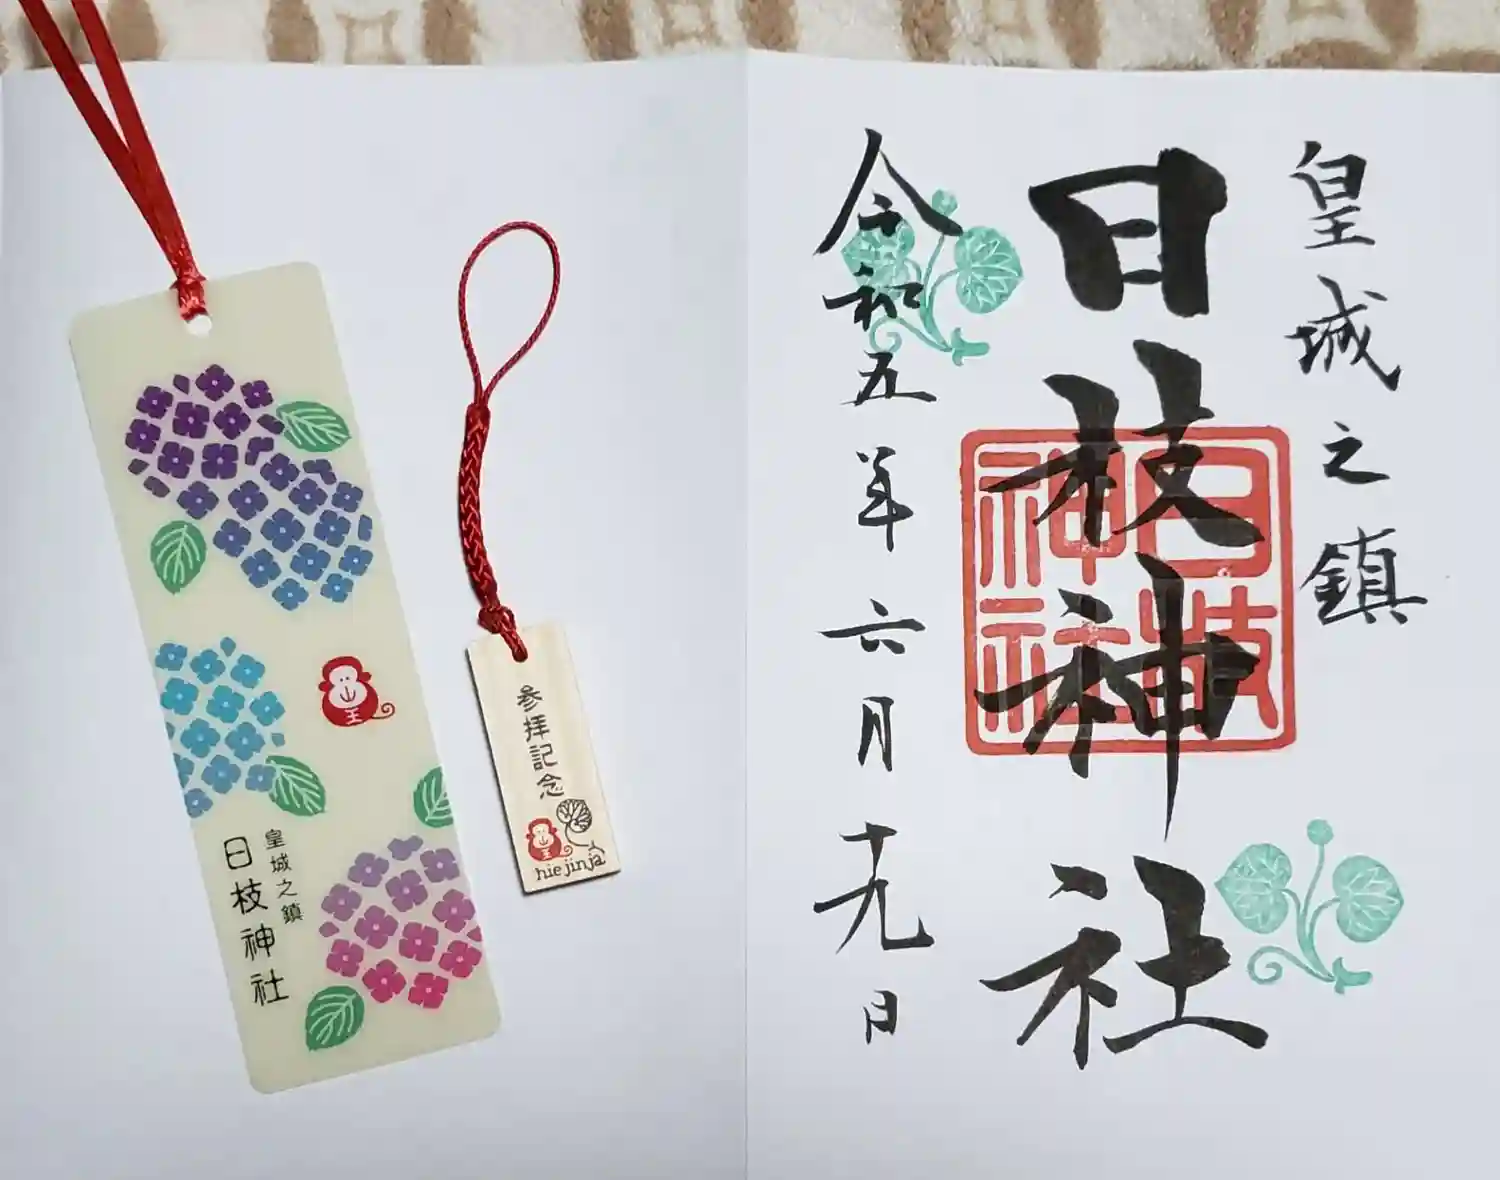 皇城之鎮
日枝神社
日枝
神社
令和五年六月十九日
参拝記念
hie jinja
皇城之鎮
日枝神社